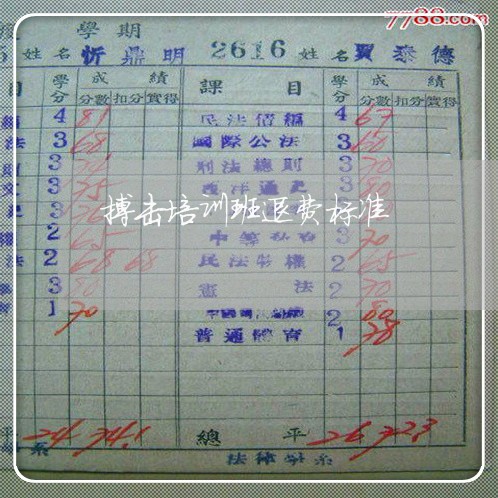 7788.com
學期
姓名 忻鼎明 2616 姓名 賈泰德
目 學分 成績 課目 學分 成績
分數 扣分 實得 分數 扣分 實得
4 81 民法債編 4 67
法 3 68 國際公法 3 60
3 刑法總則 3 70
3 75 西洋通史 3
搏击培训班退费标准
2 65 3 70
法 2 68 68 民法物權 2 65
3 80 憲法 2 70
1 70 2 80
普通體育 1 78
平 24 74.1 總平 26 72.3
系 法律學系